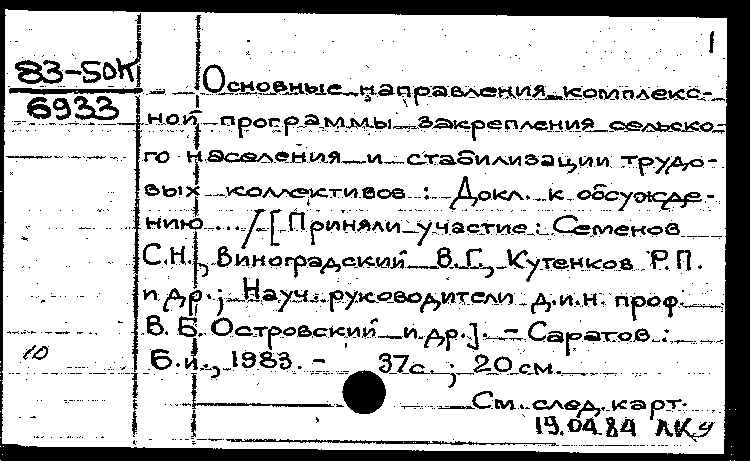 1
83-50К
6933
Основные направления комплекс-
ной программы закрепления сельско-
го населения и стабилизации трудо-
вых коллективов : Докл. к обсужде-
нию ... / [ Приняли участие : Семенов
С.Н., Виноградский В.Г., Кутенков Р.П.
и др. ; Науч. руководители д.и.н. проф.
В.Б. Островский и др.]. - Саратов :
Б.и., 1983. - 37с. ; 20 см.
10
См. след. карт.
19.04.84 ЛК